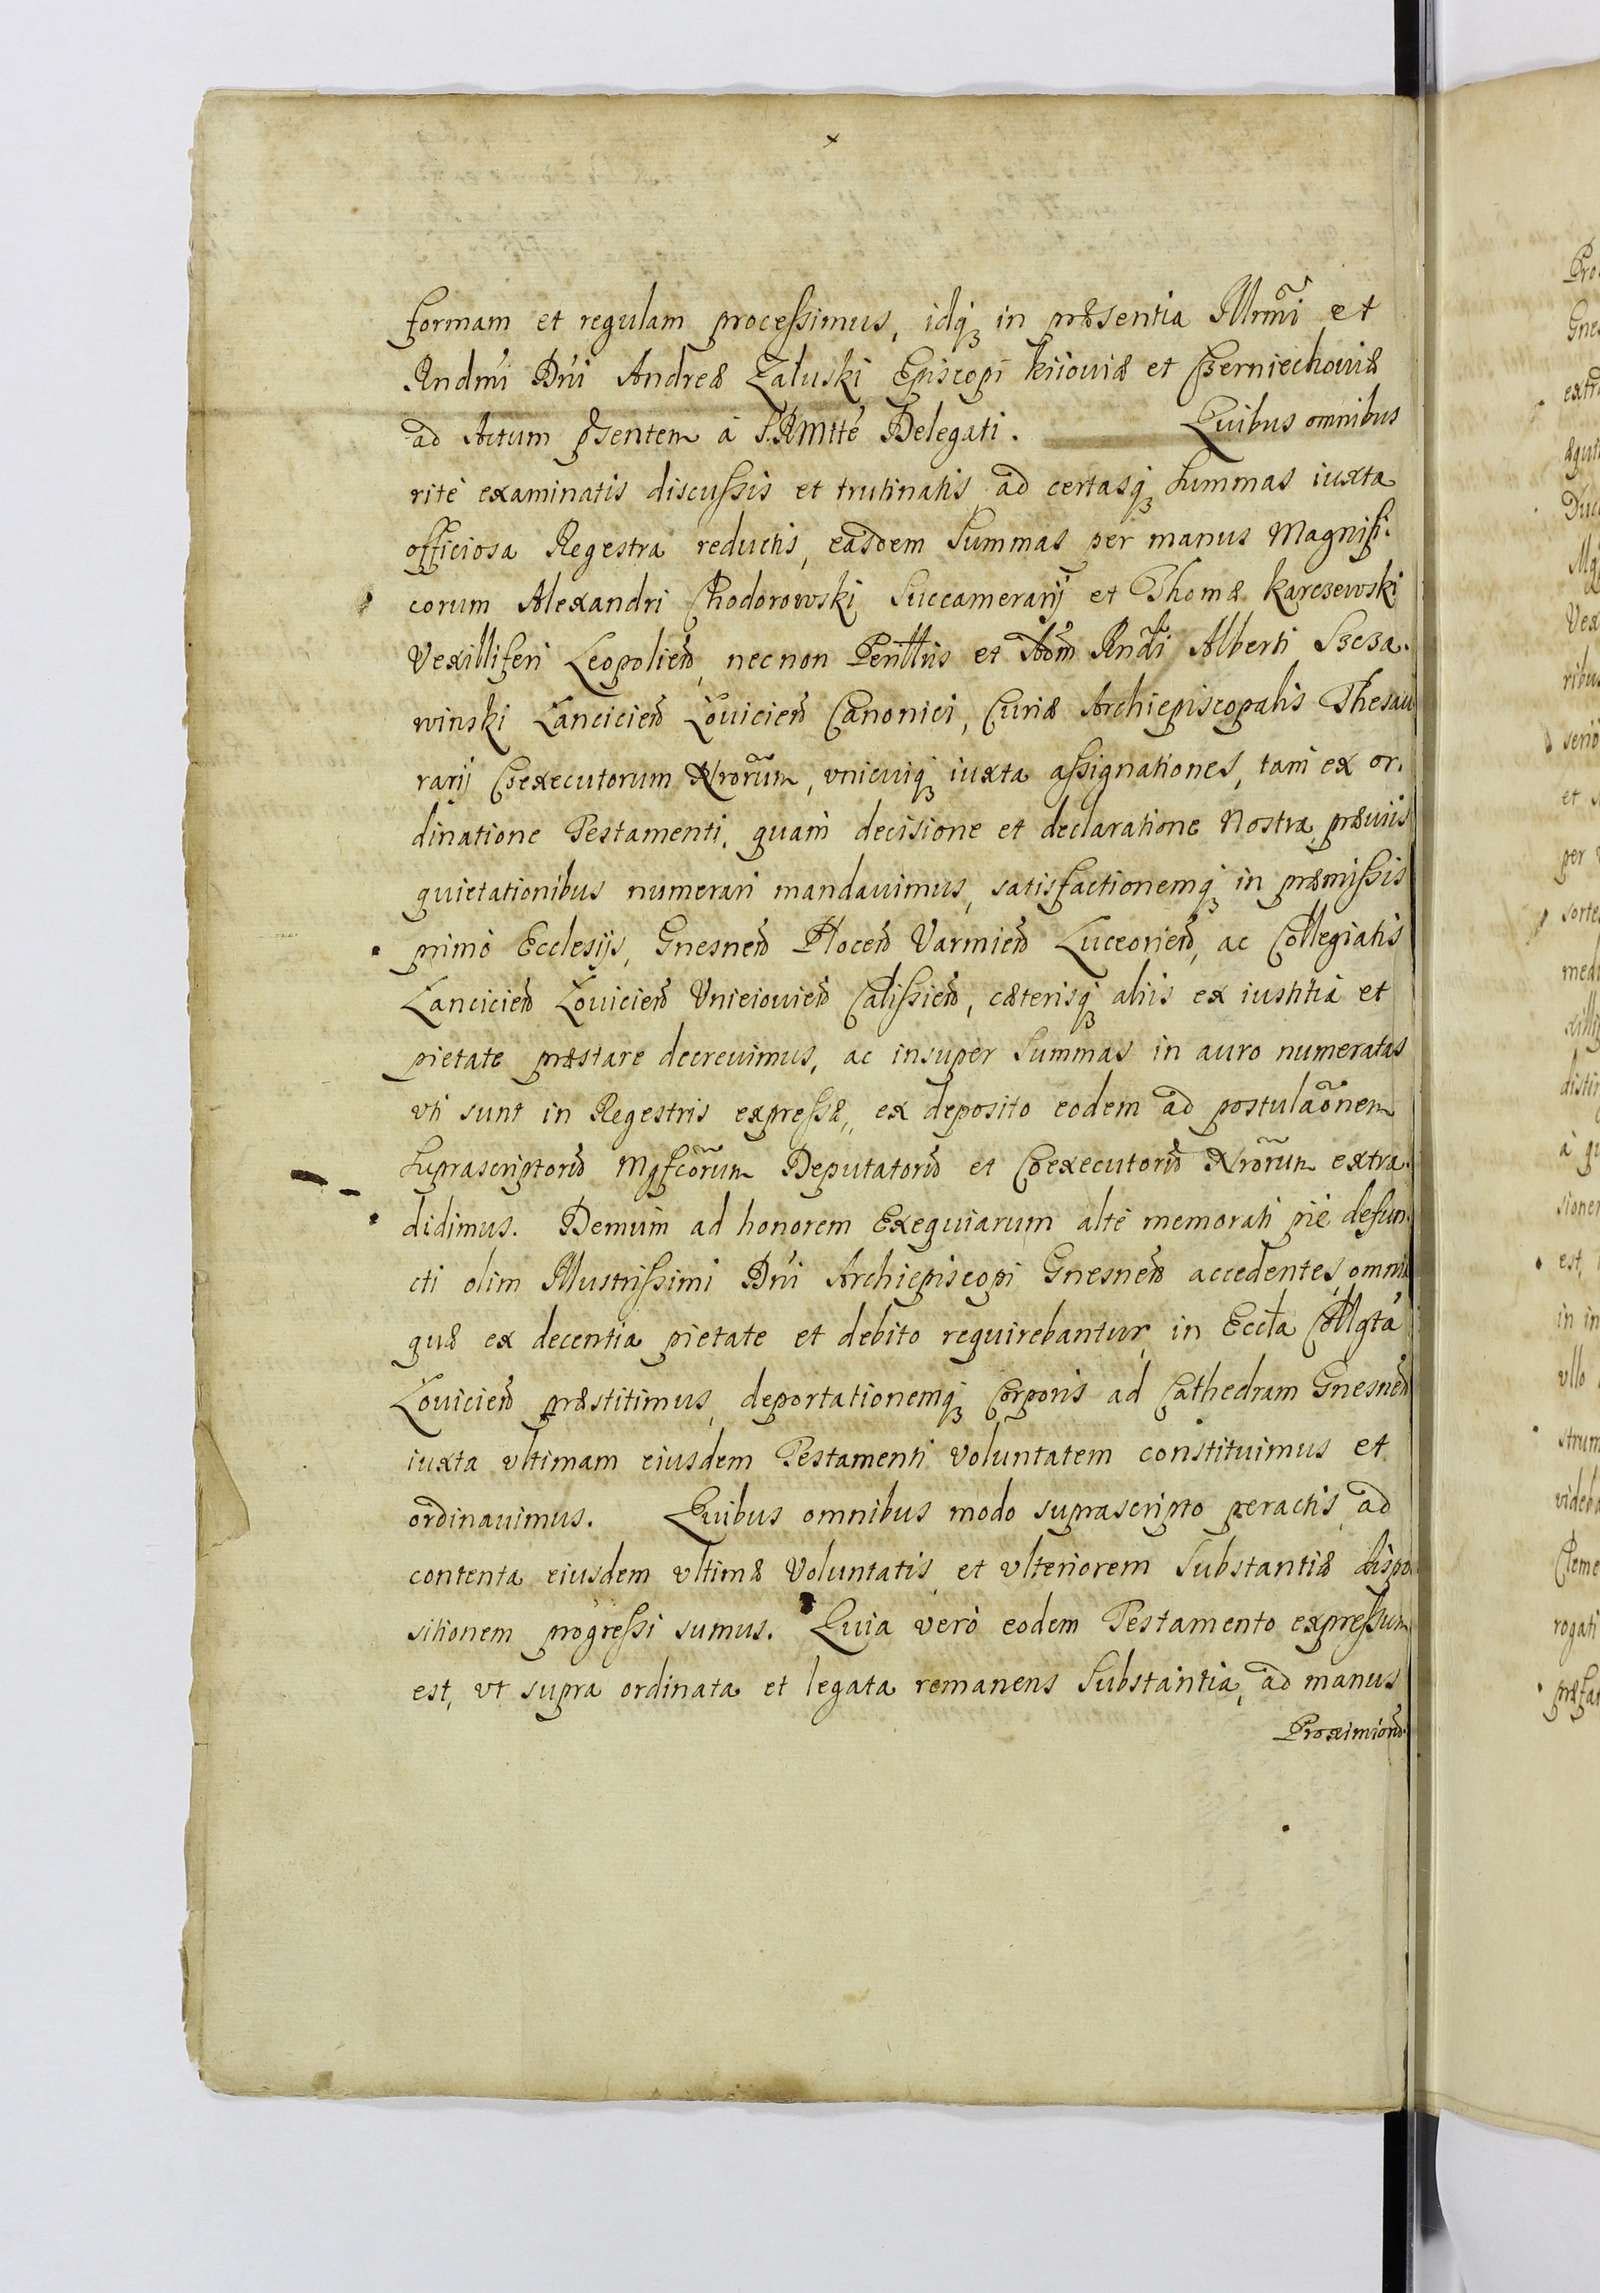 formam et regulam processimus, idq; in præsentia Illrmi et
Rndmi Dni Andreæ Załuski Episcopi kiioviæ et Czerniechoviæ
ad Actum pñsentem á S.RMtte Delegati. Quibus omnibus
rité examinatis discussis et trutinatis, ad certasq; Summas iuxta
officiosa Regestra reductis, easdem Summas per manus Magnifi-
corum Alexandri Chodorowski Succamerarij et Thomæ Karczewski
Vexilliferi Leopolien, necnon Perillris et Adm Rndi Alberti Szcza-
winski Lancicien Lovicien Canonici, Curiæ Archiepiscopalis Thesau
rarij Coexecutorum Nrorum, vnicuiq; iuxta assignationes, tam ex or-
dinatione Testamenti, quam decisione et declaratione Nostra, præviis
quietationibus numerari mandavimus, satisfactionemq; in præmissis
primó Ecclesijs, Gnesnen Plocen Varmien Luceorien, ac Collegiatis
Lancicien Lovicien Vnieiovien Calissien, cæterisq; aliis ex iustitiá et
pietate præstare decrevimus, ac insuper Summas in auro numeratas
vti sunt in Regestris expressæ, ex deposito eodem ad postulaonem
Suprascriptoru Mgfcorum Deputatoru et Coexecutoru Nrorum extra-
didimus. Demum ad honorem Exequiarum alté memorati pié defun-
cti olim Illustrissimi Dni Archiepiscopi Gnesnen accedentes, omnia
quæ ex decentia pietate et debito requirebantur, in Eccla Collgta
Lovicien præstitimus, deportationemq; Corporis ad Cathedram Gnesnen
iuxta vltimam eiusdem Testamenti voluntatem constituimus et
ordinavimus. Quibus omnibus modo suprascripto peractis, ad
contenta eiusdem vltimæ Voluntatis, et vlteriorem Substantiæ dispo
sitionem progressi sumus. Quia veró eodem Testamento expressum
est, vt supra ordinata et legata remanens Substantia, ad manus
Proximioru